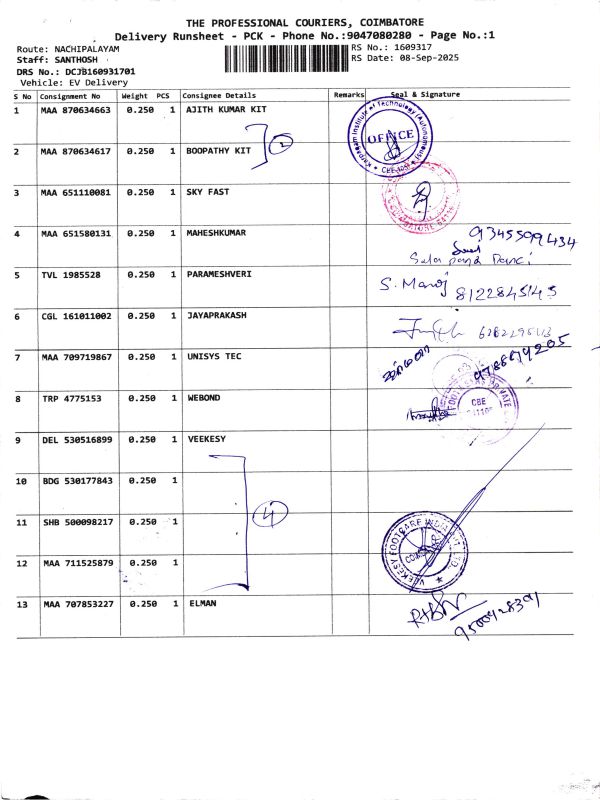 THE PROFESSIONAL COURIERS, COIMBATORE
Delivery Runsheet - PCK - Phone No.:9047080280 - Page No.:1
Route: NACHIPALAYAM
RS No.: 1609317
Staff: SANTHOSH
RS Date: 08-Sep-2025
DRS No.: DCJB160931701
Vehicle: EV Delivery
S No Consignment No Weight PCS Consignee Details Remarks Seal & Signature
1 MAA 870634663 0.250 1 AJITH KUMAR KIT
Karpagam Institute of Technology (Autonomous)
OFFICE
2 MAA 870634617 0.250 1 BOOPATHY KIT 2
3 MAA 651110081 0.250 1 SKY FAST
4 MAA 651580131 0.250 1 MAHESHKUMAR 9345599434
5 TVL 1985528 0.250 1 PARAMESHVERI S. Manoj 8122845145
6 CGL 161011002 0.250 1 JAYAPRAKASH
7 MAA 709719867 0.250 1 UNISYS TEC
8 TRP 4775153 0.250 1 WEBOND
CBE
9 DEL 530516899 0.250 1 VEEKESY
10 BDG 530177843 0.250 1
11 SHB 500098217 0.250 1 4
VEEKESY FOOTCARE INDIA PVT LTD.
12 MAA 711525879 0.250 1
13 MAA 707853227 0.250 1 ELMAN